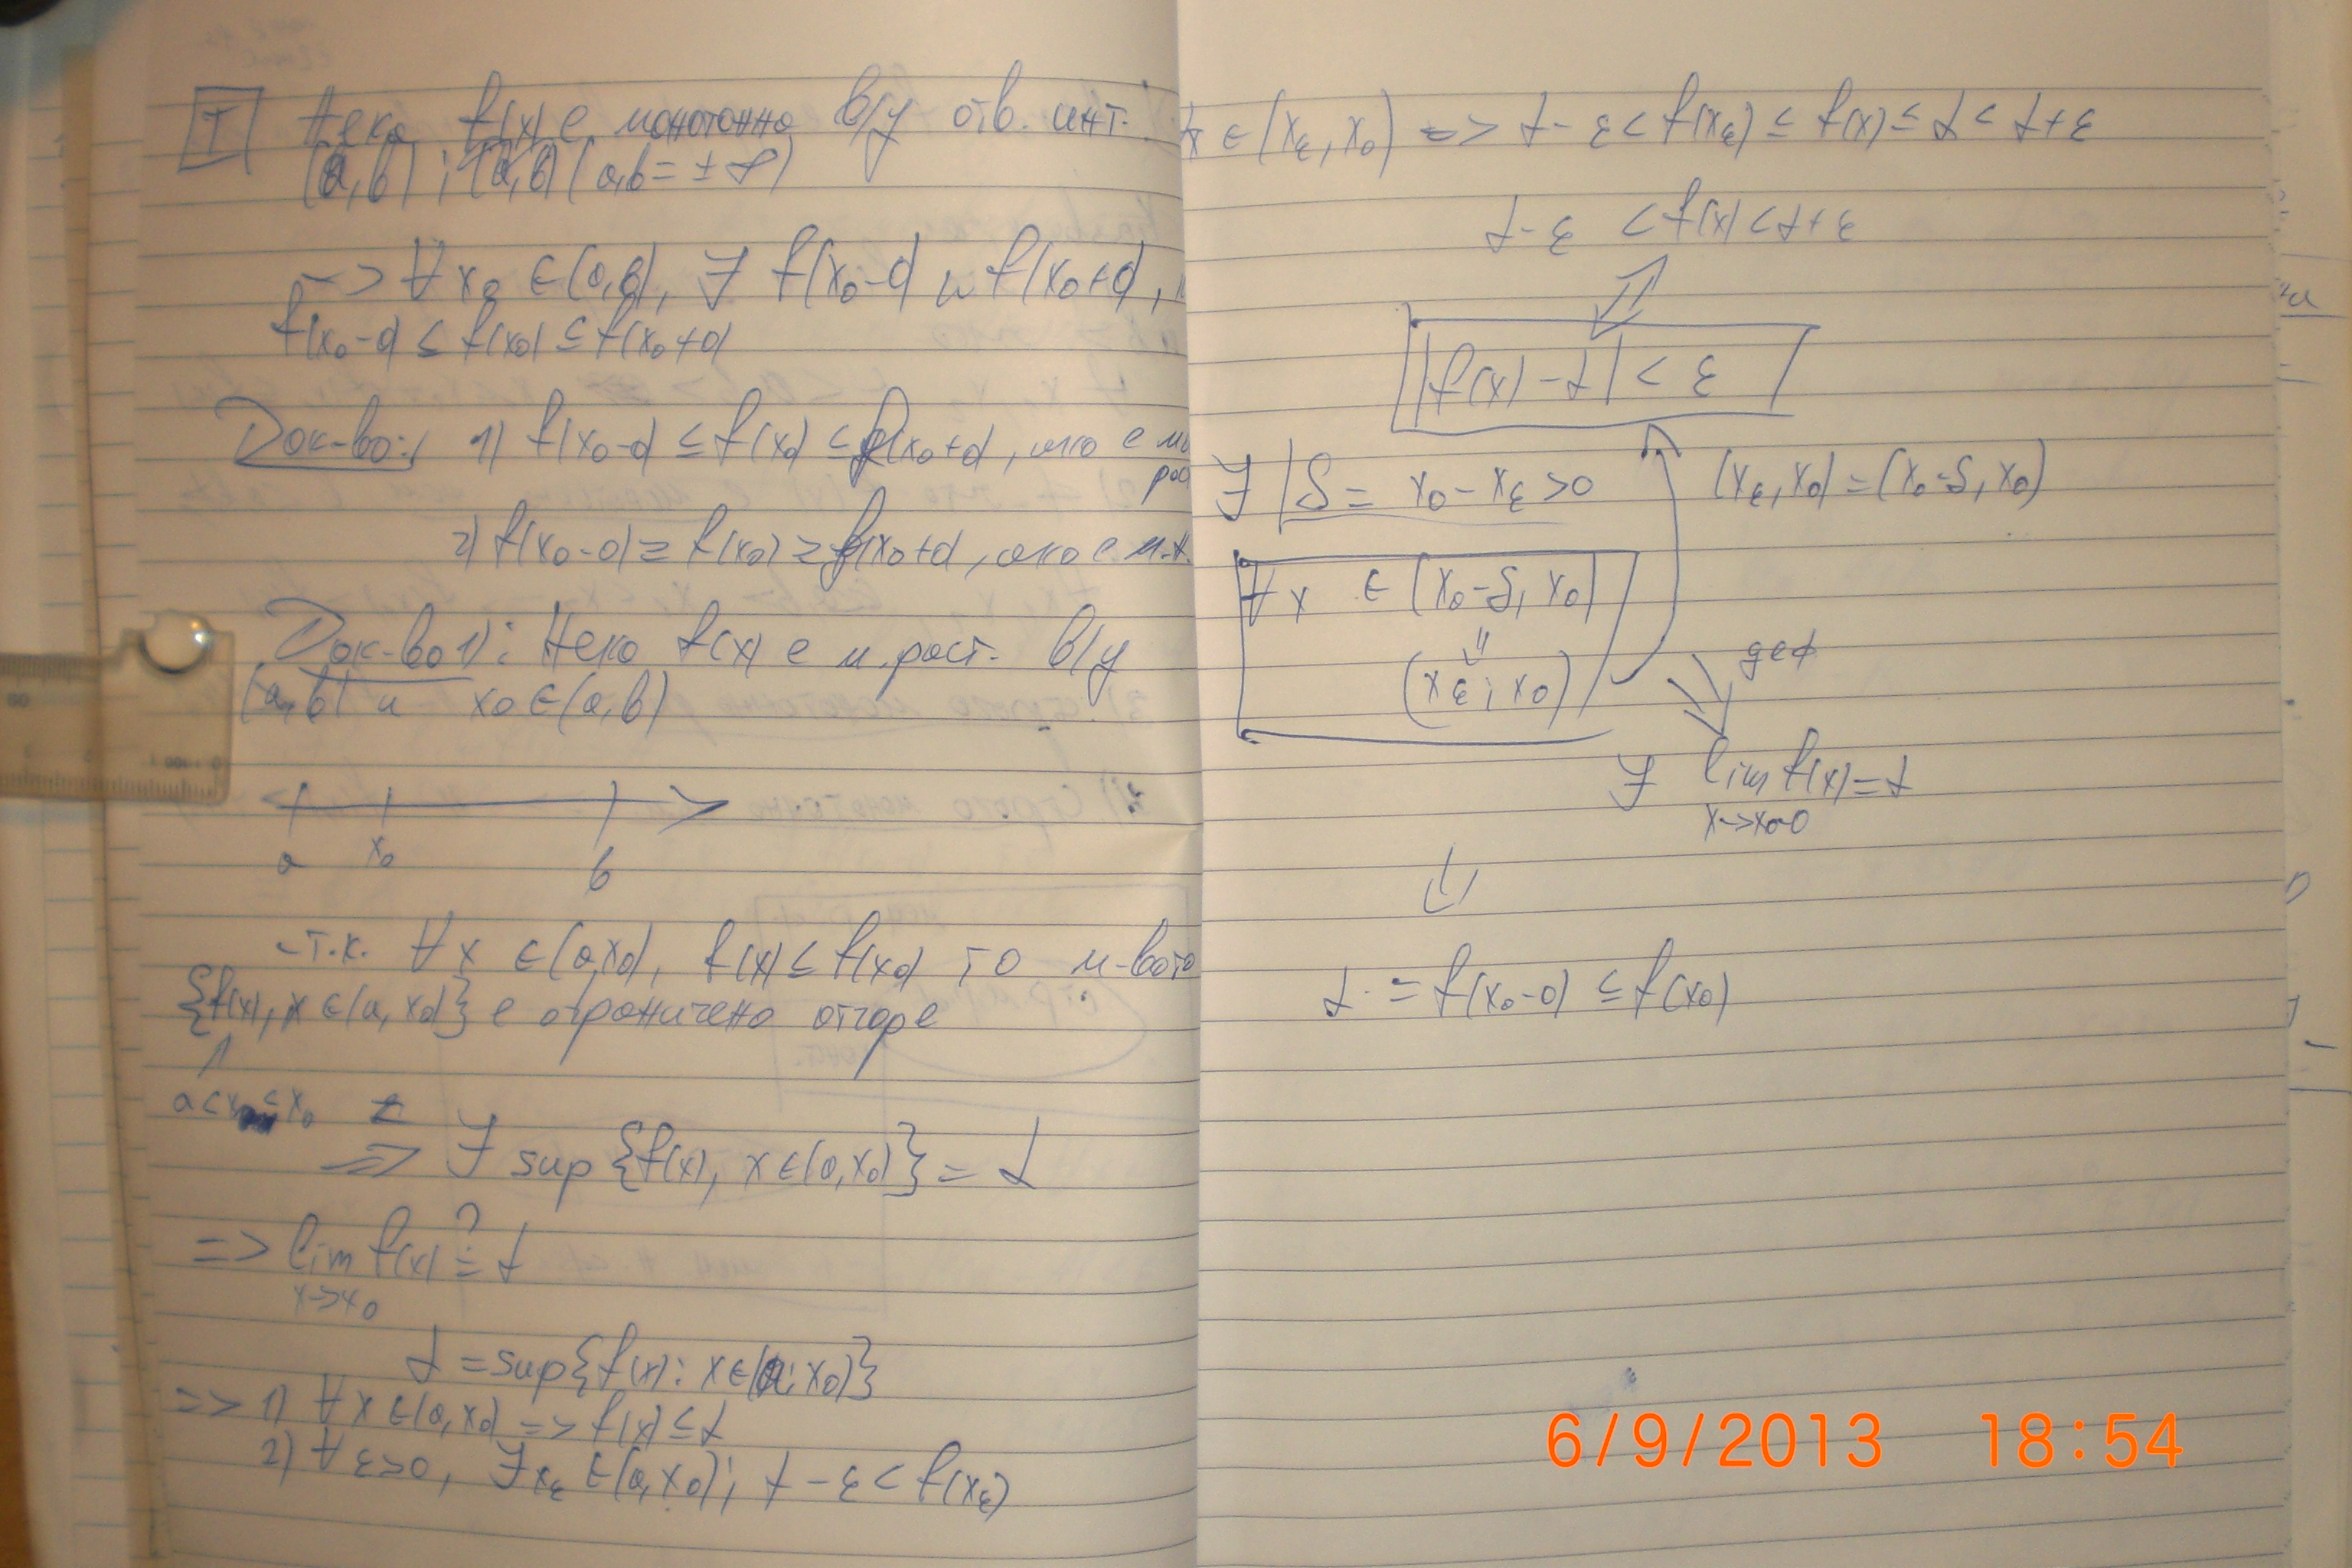 T Нека f(x) е монотонна в/у отв. инт.
(a,b) ; (a,b) (a,b = ± ∞)
=> ∀ x₀ ∈ (a,b), ∃ f(x₀-0) и f(x₀+0),
f(x₀-0) ≤ f(x₀) ≤ f(x₀+0)
Док-во: 1) f(x₀-0) ≤ f(x₀) ≤ f(x₀+0), ако е м.
рас
2) f(x₀-0) ≥ f(x₀) ≥ f(x₀+0), ако е м.н.
Док-во 1): Нека f(x) е м. раст. в/у
(a,b) и x₀ ∈ (a,b)
a x₀ b
-т.к. ∀ x ∈ (a,x₀), f(x) ≤ f(x₀) то м-вото
{f(x), x ∈ (a, x₀)} е ограничено отгоре
a < x < x₀
=> ∃ sup {f(x), x ∈ (a,x₀)} = L
=> lim f(x) ?= L
x->x₀
L = sup{f(x): x ∈ (a; x₀)}
=> 1) ∀ x ∈ (a, x₀) => f(x) ≤ L
2) ∀ ε>0, ∃ xε ∈ (a, x₀); L - ε < f(xε)
∀x ∈ (xε, x₀) => L - ε < f(xε) ≤ f(x) ≤ L < L+ε
L-ε < f(x) < L+ε
|f(x) - L| < ε
∃ δ = x₀ - xε > 0 (xε, x₀) = (x₀-δ, x₀)
∀ x ∈ (x₀-δ, x₀)
(xε ; x₀)
деф
∃ lim f(x) = L
x->x₀-0
L = f(x₀-0) ≤ f(x₀)
6/9/2013 18:54